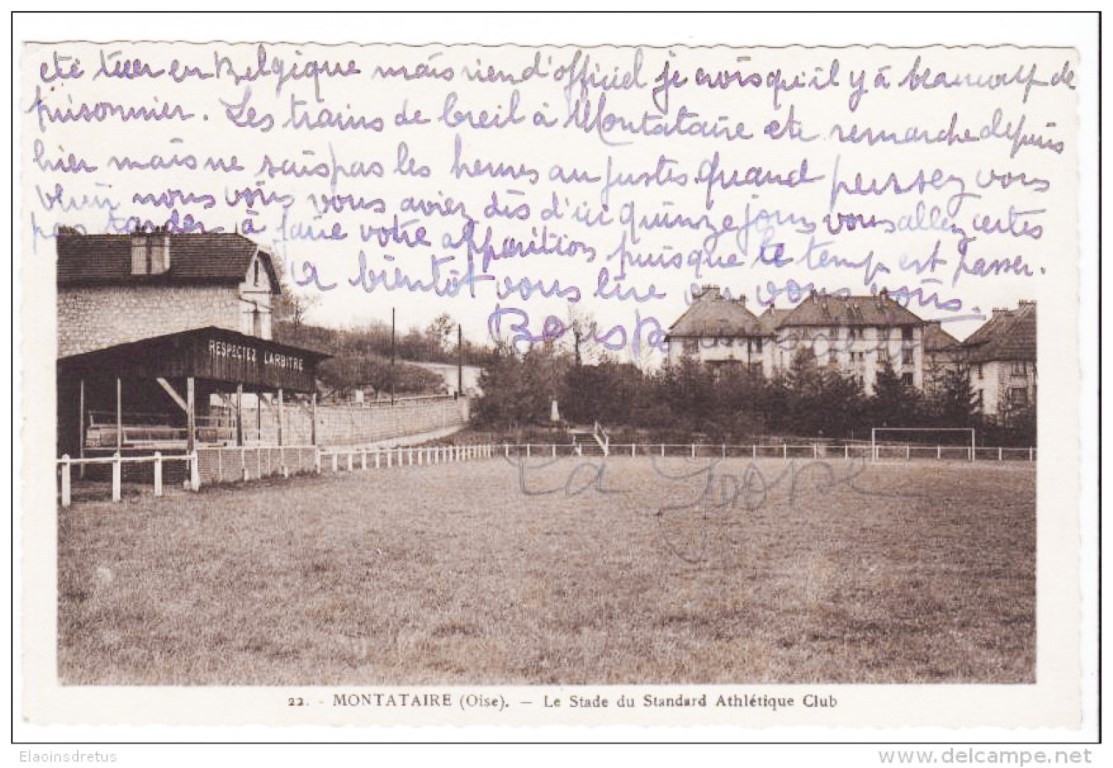 été tuer en Belgique mais rien d'officiel je crois qu'il y à beaucoup de
prisonnier. Les trains de Creil à Montataire ete remarche depuis
hier mais ne sais pas les heures au justes. Quand pensez vous
venir nous vois vous aviez dis d'ici quinze jours vous allez certes
pas tarder à faire votre apparition puisque le temp est passer.
A bientôt vous lire ou vous vous.
RESPECTEZ L'ARBITRE
22. - MONTATAIRE (Oise). - Le Stade du Standard Athlétique Club
Elaoinsdretus
www.delcampe.net